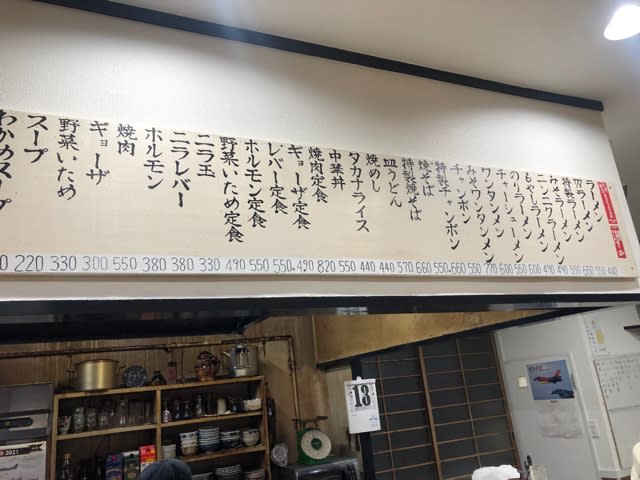 ラーメン
特製ラーメン
みそラーメン
ニンニクラーメン
もやしラーメン
のりラーメン
チャーシューメン
ワンタンメン
みそワンタンメン
チャンポン
特製チャンポン
焼そば
特製焼そば
皿うどん
焼めし
タカナライス
中華丼
焼肉定食
ギョーザ定食
レバー定食
ホルモン定食
野菜いため定食
ニラ玉
ニラレバー
ホルモン
焼肉
ギョーザ
野菜いため
スープ
わかめスープ
220 330 300 550 380 380 330 490 550 550 490 820 550 440 440 570 660 550 660 550 770 600 550 600 490 490 550 660 550 440
13
2021